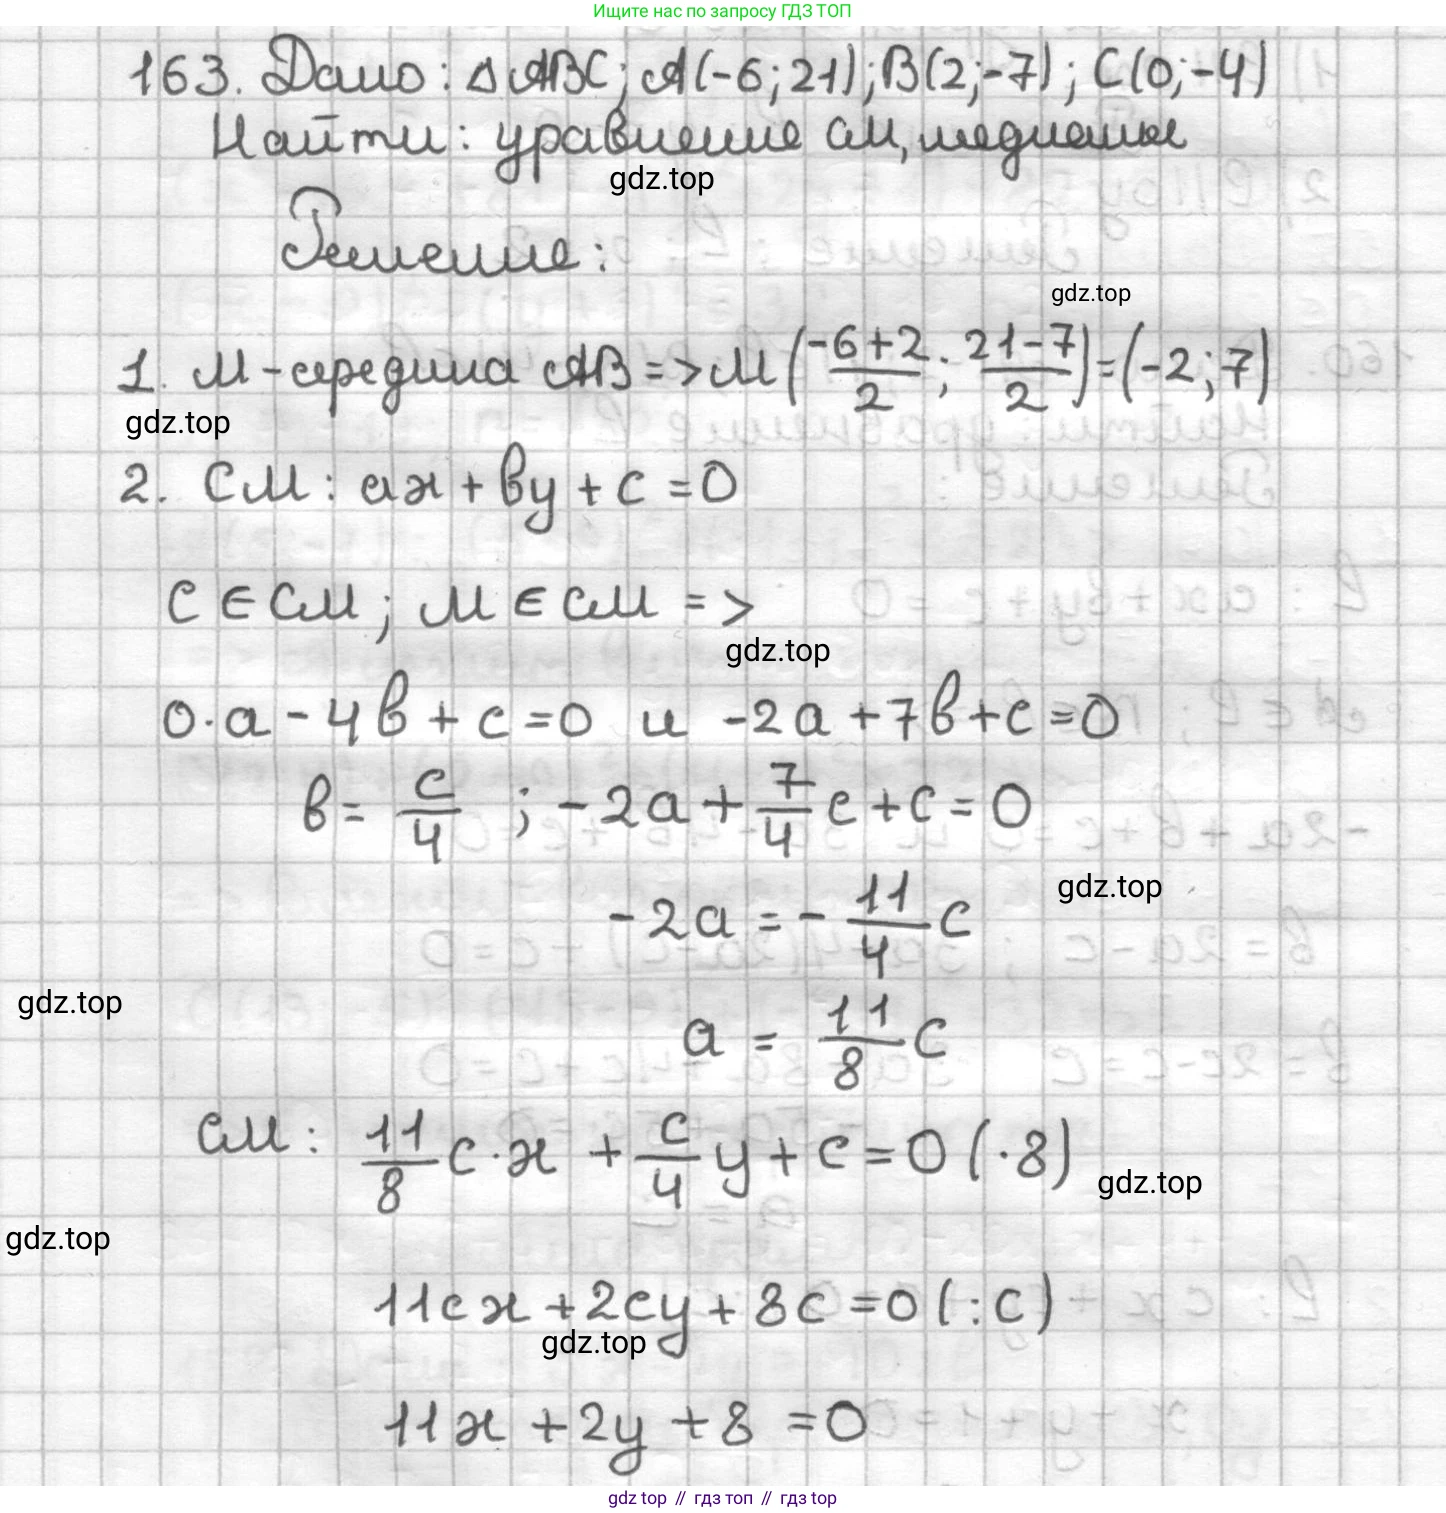 Ищите нас по запросу ГДЗ ТОП
163. Дано: ΔABC; A(-6; 21); B(2; -7); C(0; -4)
Найти: уравнение CM, медианы
gdz.top
Решение:
gdz.top
1. M - середина AB => M (\frac{-6+2}{2}; \frac{21-7}{2}) = (-2; 7)
gdz.top
2. CM: ax + by + c = 0
C ∈ CM; M ∈ CM =>
gdz.top
0·a - 4b + c = 0 и -2a + 7b + c = 0
b = \frac{c}{4} ; -2a + \frac{7}{4}c + c = 0
gdz.top
-2a = -\frac{11}{4}c
gdz.top
a = \frac{11}{8}c
CM: \frac{11}{8}c·x + \frac{c}{4}y + c = 0 (·8)
gdz.top
gdz.top
11cx + 2cy + 8c = 0 (:c)
gdz.top
11x + 2y + 8 = 0
gdz top // гдз топ // гдз top